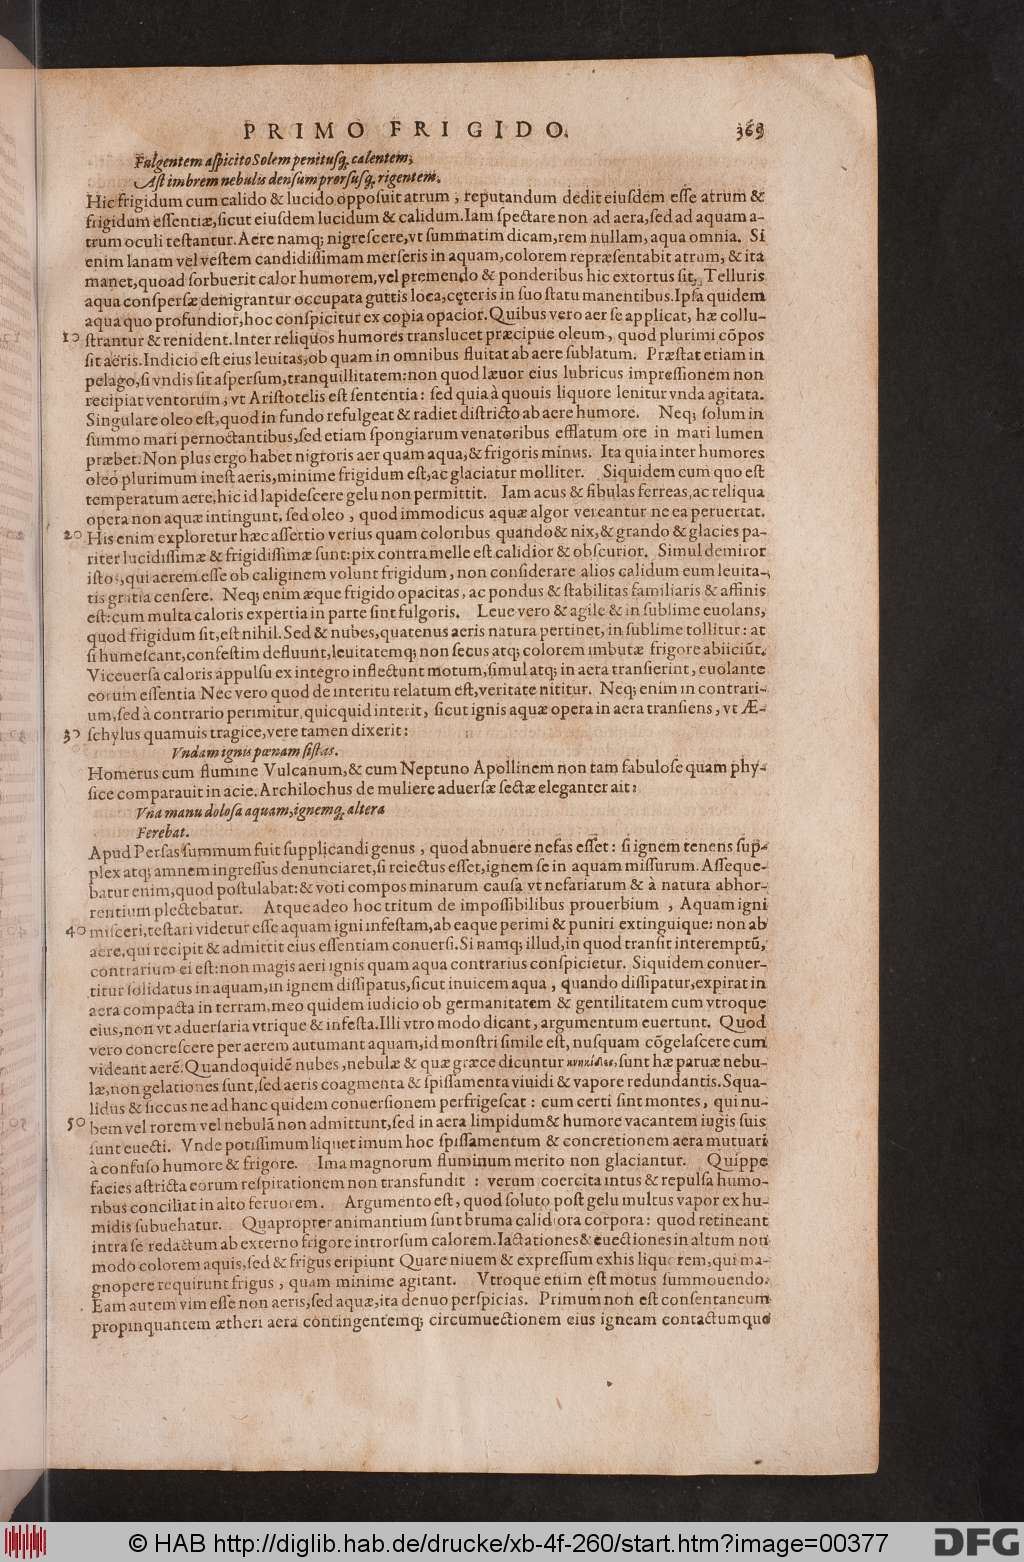 PRIMO FRIGIDO. 369
Fulgentem aſpicito Solem penitusq́; calentem;
Aſt imbrem nebulis denſum prorſusq́; rigentem.
Hic frigidum cum calido & lucido oppoſuit atrum, reputandum dedit eiuſdem eſſe atrum &
frigidum eſſentiæ, ſicut eiuſdem lucidum & calidum. Iam ſpectare non ad aera, ſed ad aquam a-
trum oculi teſtantur. Aere namq; nigreſcere, vt ſummatim dicam, rem nullam, aqua omnia. Si
enim lanam vel veſtem candidiſſimam merſeris in aquam, colorem repræſentabit atrum, & ita
manet, quoad ſorbuerit calor humorem, vel premendo & ponderibus hic extortus ſit. Telluris
aqua conſperſæ denigrantur occupata guttis loca, cęteris in ſuo ſtatu manentibus. Ipſa quidem
aqua quo profundior, hoc conſpicitur ex copia opacior. Quibus vero aer ſe applicat, hæ collu-
10 ſtrantur & renident. Inter reliquos humores translucet præcipue oleum, quod plurimi cõpos
ſit aeris. Indicio eſt eius leuitas, ob quam in omnibus fluitat ab aere ſublatum. Præſtat etiam in
pelago, ſi vndis ſit aſperſum, tranquillitatem: non quod læuor eius lubricus impreſſionem non
recipiat ventorum, vt Ariſtotelis eſt ſententia: ſed quia à quouis liquore lenitur vnda agitata.
Singulare oleo eſt, quod in fundo refulgeat & radiet diſtricto ab aere humore. Neq; ſolum in
ſummo mari pernoctantibus, ſed etiam ſpongiarum venatoribus efflatum ore in mari lumen
præbet. Non plus ergo habet nigroris aer quam aqua, & frigoris minus. Ita quia inter humores
oleo plurimum ineſt aeris, minime frigidum eſt, ac glaciatur molliter. Siquidem cum quo eſt
temperatum aere, hic id lapideſcere gelu non permittit. Iam acus & fibulas ferreas, ac reliqua
opera non aquæ intingunt, ſed oleo, quod immodicus aquæ algor vereantur ne ea peruertat.
20 His enim exploretur hæc aſſertio verius quam coloribus quando & nix, & grando & glacies pa-
riter lucidiſſimæ & frigidiſſimæ ſunt: pix contra melle eſt calidior & obſcurior. Simul demiror
iſtos, qui aerem eſſe ob caliginem volunt frigidum, non conſiderare alios calidum eum leuita-
tis gratia cenſere. Neq; enim æque frigido opacitas, ac pondus & ſtabilitas familiaris & affinis
eſt: cum multa caloris expertia in parte ſint fulgoris. Leue vero & agile & in ſublime euolans,
quod frigidum ſit, eſt nihil. Sed & nubes, quatenus aeris natura pertinet, in ſublime tollitur: at
ſi humeſcant, confeſtim defluunt, leuitatemq; non ſecus atq; colorem imbutæ frigore abiiciũt.
Viceuerſa caloris appulſu ex integro inflectunt motum, ſimulatq; in aera tranſierint, euolante
eorum eſſentia Nec vero quod de interitu relatum eſt, veritate nititur. Neq; enim in contrari-
um, ſed à contrario perimitur quicquid interit, ſicut ignis aquæ opera in aera tranſiens, vt Æ-
30 ſchylus quamuis tragice, vere tamen dixerit:
Vndam ignis pœnam ſiſtas.
Homerus cum flumine Vulcanum, & cum Neptuno Apollinem non tam fabuloſe quam phy-
ſice comparauit in acie. Archilochus de muliere aduerſæ ſectæ eleganter ait:
Vna manu doloſa aquam, ignemq́; altera
Ferebat.
Apud Perſas ſummum fuit ſupplicandi genus, quod abnuere nefas eſſet: ſi ignem tenens ſup-
plex atq; amnem ingreſſus denunciaret, ſi reiectus eſſet, ignem ſe in aquam miſſurum. Aſſeque-
batur enim, quod poſtulabat: & voti compos minarum cauſa vt nefariarum & à natura abhor-
rentium plectebatur. Atque adeo hoc tritum de impoſſibilibus prouerbium, Aquam igni
40 miſceri, teſtari videtur eſſe aquam igni infeſtam, ab eaque perimi & puniri extinguique: non ab
aere, qui recipit & admittit eius eſſentiam conuerſi. Si namq; illud, in quod tranſit interemptũ,
contrarium ei eſt: non magis aeri ignis quam aqua contrarius conſpicietur. Siquidem conuer-
titur ſolidatus in aquam, in ignem diſſipatus, ſicut inuicem aqua, quando diſſipatur, expirat in
aera compacta in terram, meo quidem iudicio ob germanitatem & gentilitatem cum vtroque
eius, non vt aduerſaria vtrique & infeſta. Illi vtro modo dicant, argumentum euertunt. Quod
vero concreſcere per aerem autumant aquam, id monſtri ſimile eſt, nuſquam cõgelaſcere cum
videant aerẽ. Quandoquidẽ nubes, nebulæ & quæ græce dicuntur ſunt hæ paruæ nebu-
læ, non gelationes ſunt, ſed aeris coagmenta & ſpiſſamenta viuidi & vapore redundantis. Squa-
lidus & ſiccus ne ad hanc quidem conuerſionem perfrigeſcat: cum certi ſint montes, qui nu-
50 bem vel rorem vel nebulã non admittunt, ſed in aera limpidum & humore vacantem iugis ſuis
ſunt euecti. Vnde potiſſimum liquet imum hoc ſpiſſamentum & concretionem aera mutuari
à confuſo humore & frigore. Ima magnorum fluminum merito non glaciantur. Quippe
facies aſtricta eorum reſpirationem non transfundit: verum coercita intus & repulſa humo-
ribus conciliat in alto feruorem. Argumento eſt, quod ſoluto poſt gelu multus vapor ex hu-
midis ſubuehatur. Quapropter animantium ſunt bruma calidiora corpora: quod retineant
intra ſe redactum ab externo frigore introrſum calorem. Iactationes & euectiones in altum non
modo colorem aquis, ſed & frigus eripiunt Quare niuem & expreſſum ex his liquorem, qui ma-
gnopere requirunt frigus, quam minime agitant. Vtroque enim eſt motus ſummouendo.
Eam autem vim eſſe non aeris, ſed aquæ, ita denuo perſpicias. Primum non eſt conſentaneum
propinquantem ætheri aera contingentemq; circumuectionem eius igneam contactumque
© HAB http://diglib.hab.de/drucke/xb-4f-260/start.htm?image=00377
DFG